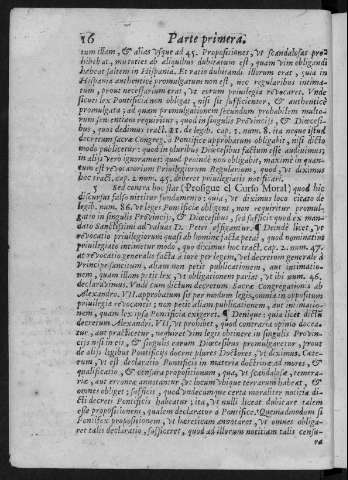 16 Parte primera.
tum illam, & alias vsque ad 45. Propositiones, vt scandalosas pro-
hibebat, mutoties ab aliquibus dubitatum est, quam vim obligandi
habeat saltem in Hispania. Et ratio dubitandi illorum erat, quia in
Hispania authenticè promulgatum non est, nec regularibus intima-
tum, prout necessarium erat, vt eorum privilegia revocaret. Vnde
sicut lex Pontificia non obligat, nisi sit sufficienter, & authenticè
promulgata; ad quam promulgationem secundum probabilem multo-
rum sententiam requiritur, quod in singulis Provincijs, & Diœcesi-
bus, quod dedimus tract. 11. de legib. cap. 2. num. 8. ita neque istud
decretum sacræ Congreg. à Pontifice approbatum obligabit, nisi dicto
modo publicetur: quod in pluribus Diœcesibus factum esse audivimus;
in alijs verò ignoramus: quod proinde non obligabit, maximè in quan-
tum est revocativum Privilegiorum Regularium, quod, vt diximus
hoc tract. cap. 2. num. 45. deberet privilegiatis notificari.
5 Sed contra hoc stat (Prosigue el Curso Moral) quod hic
discursus falso nititur fundamento; quia, vt diximus loco citato de
legib. num. 86. vt leges Pontificiæ obligent, non requiritur promul-
gatio in singulis Provincijs, & Diœcesibus, sed sufficit quod ex man-
dato Sanctissimi ad valvas D. Petri affigantur. ¶ Deinde licet, vt
revocatio privilegiorum quasi ab homine facta petat, quod nominatim
privilegiato intimetur modo, quo diximus hoc tract. cap. 2. num. 47.
at revocatio generalis facta à iure per legem, vel decretum generale à
Principe sancitum, aliam non petit publicationem, aut intimatio-
nem, quam illam petit lex, vt obligationem pariat, vt ibi num. 46.
declaravimus. Vnde cum dictum decretum Sacræ Congregationis ab
Alexandro. VII. approbatum sit per modum legis, omnia in oppositum
privilegia revocantis; non petit aliam publicationem, aut intimatio-
nem, quam lex ipsa Pontificia exigeret. ¶ Denique: quia licet dictū
decretum Alexandri. VII, vt prohibet, quod contraria opinio docea-
tur, aut practicetur, necesset vim legis obtinere in singulis Provin-
cijs nisi in eis, & singulis earum Diœcesibus promulgaretur, prout
de alijs legibus Pontificijs docent plures Doctores, vt diximus. Cæte-
rum, vt est declaratio Pontificis in materia doctrinæ ad mores, &
qualificatio, & censura propositionum, quæ, vt scandalosæ, temera-
riæ, aut erroneæ annotantur, vt locum vbique terrarum habeat, &
omnes obliget; sufficit, quod vndecumque certa moraliter notitia di-
cti decreti Pontificis habeatur; ita, vt nulli liceat dubitare talem
esse propositionem, qualem declaratur à Pontifice. Quemadmodum si
Pontifex propositionem, vt hæreticam annotaret, vt omnes obliga-
ret talis declaratio, sufficeret, quod ad illorum notitiam talis censu-
ra